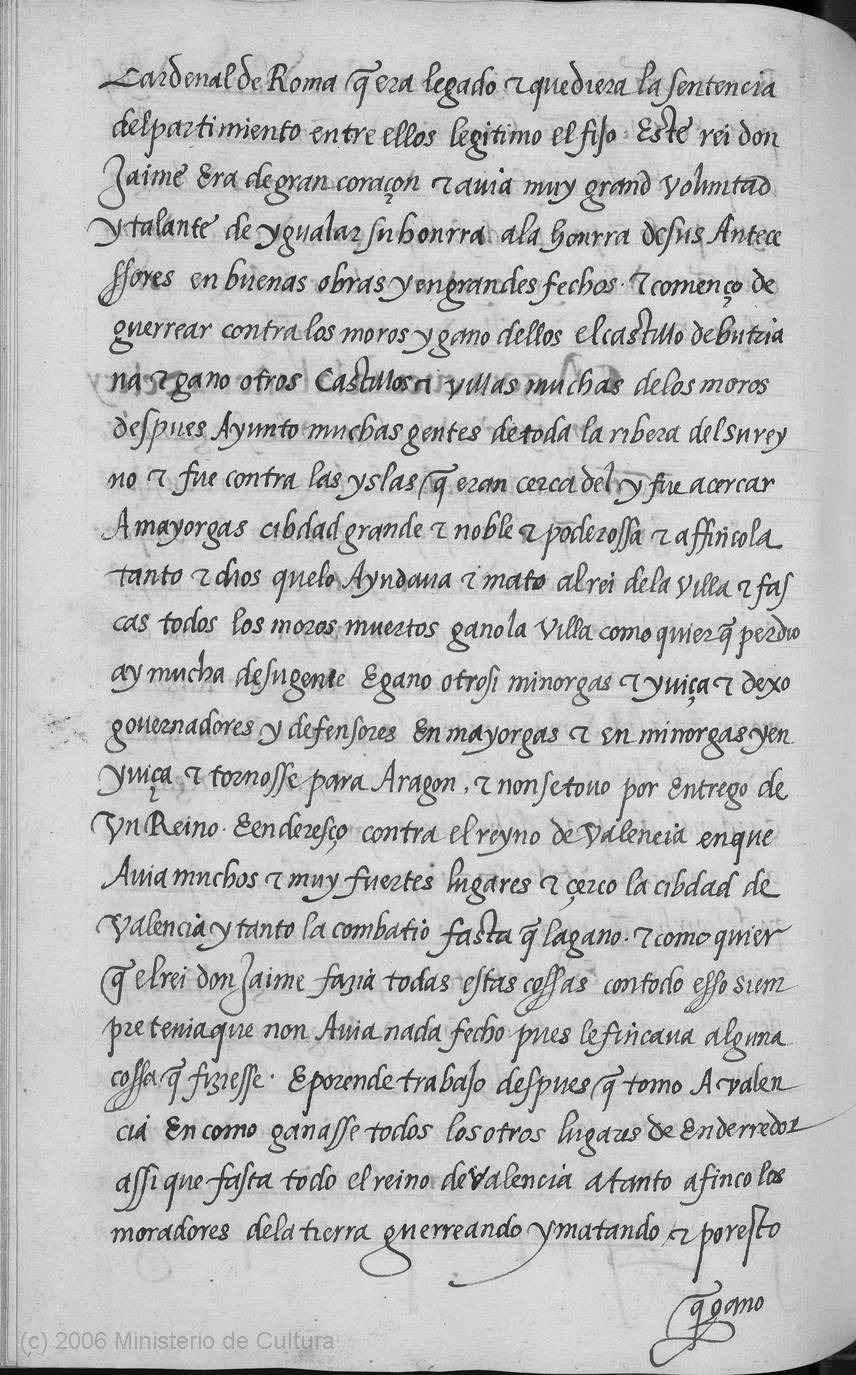 Cardenal de Roma q̃ era legado τ que diera la sentencia
del partimiento entre ellos legitimo el fijo. Este rei don
Jaime Era de gran coraçon τ auia muy grand voluntad
y talante de ygualar su honrra ala honrra de sus Antece
ssores en buenas obras y en grandes fechos. τ començo de
guerrear contra los moros y gano dellos el castillo de butria
na τ gano otros Castillos τ villas muchas de los moros
despues Ayunto muchas gentes de toda la ribera del su rey
no τ fue contra las yslas q̃ eran cerca del y fue a cercar
A mayorgas cibdad grande τ noble τ poderossa τ affincola
tanto τ dios que lo Ayudaua τ mato al rei de la Villa τ fas
cas todos los moros muertos gano la Villa como quier q̃ perdio
ay mucha de su gente E gano otrosi minorgas τ yuiça τ dexo
gouernadores y defensores En mayorgas τ en minorgas y en
yuiça τ tornosse para Aragon, τ non se touo por Entrego de
Vn Reino. E enderesço contra el reyno de Valencia en que
Auia muchos τ muy fuertes lugares τ çerco la cibdad de
Valencia y tanto la combatio fasta q̃ la gano. τ como quier
q̃ el rei don Jaime fazia todas estas cossas con todo esso siem
pre tenia que non Auia nada fecho pues le fincaua alguna
cossa q̃ fiziesse. E porende trabajo despues q̃ tomo A valen
cia En como ganasse todos los otros lugares de Enderredor
assi que fasta todo el reino de Valencia a tanto afinco los
moradores de la tierra guerreando y matando τ por esto
q̃ gano
(c) 2006 Ministerio de Cultura